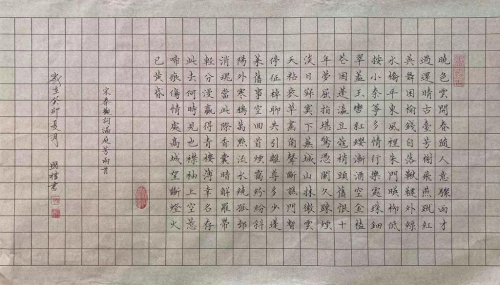 晚色雲開春隨人意驟雨才
過還晴古臺芳榭飛燕蹴紅
英舞困榆錢自落鞦韆外綠
水橋平東風裡朱門映柳低
按小秦箏多情行樂處珠鈿
翠蓋玉轡紅纓漸酒空金榼
花困蓬瀛豆蔻梢頭舊恨十
年夢屈指堪驚憑闌久疎煙
淡日寂寞下蕪城山抹微雲
天粘衰草畫角聲斷譙門暫
停征棹聊共引離尊多少蓬
萊舊事空回首煙靄紛紛斜
陽外寒鴉萬點流水繞孤邨
消魂當此際香囊暗解羅帶
輕分漫贏得青樓薄幸名存
此去何時見也襟袖上空惹
啼痕傷情處高城望斷燈火
已黄昏
宋秦觀詞滿庭芳兩首
歲在癸卯夏月 書